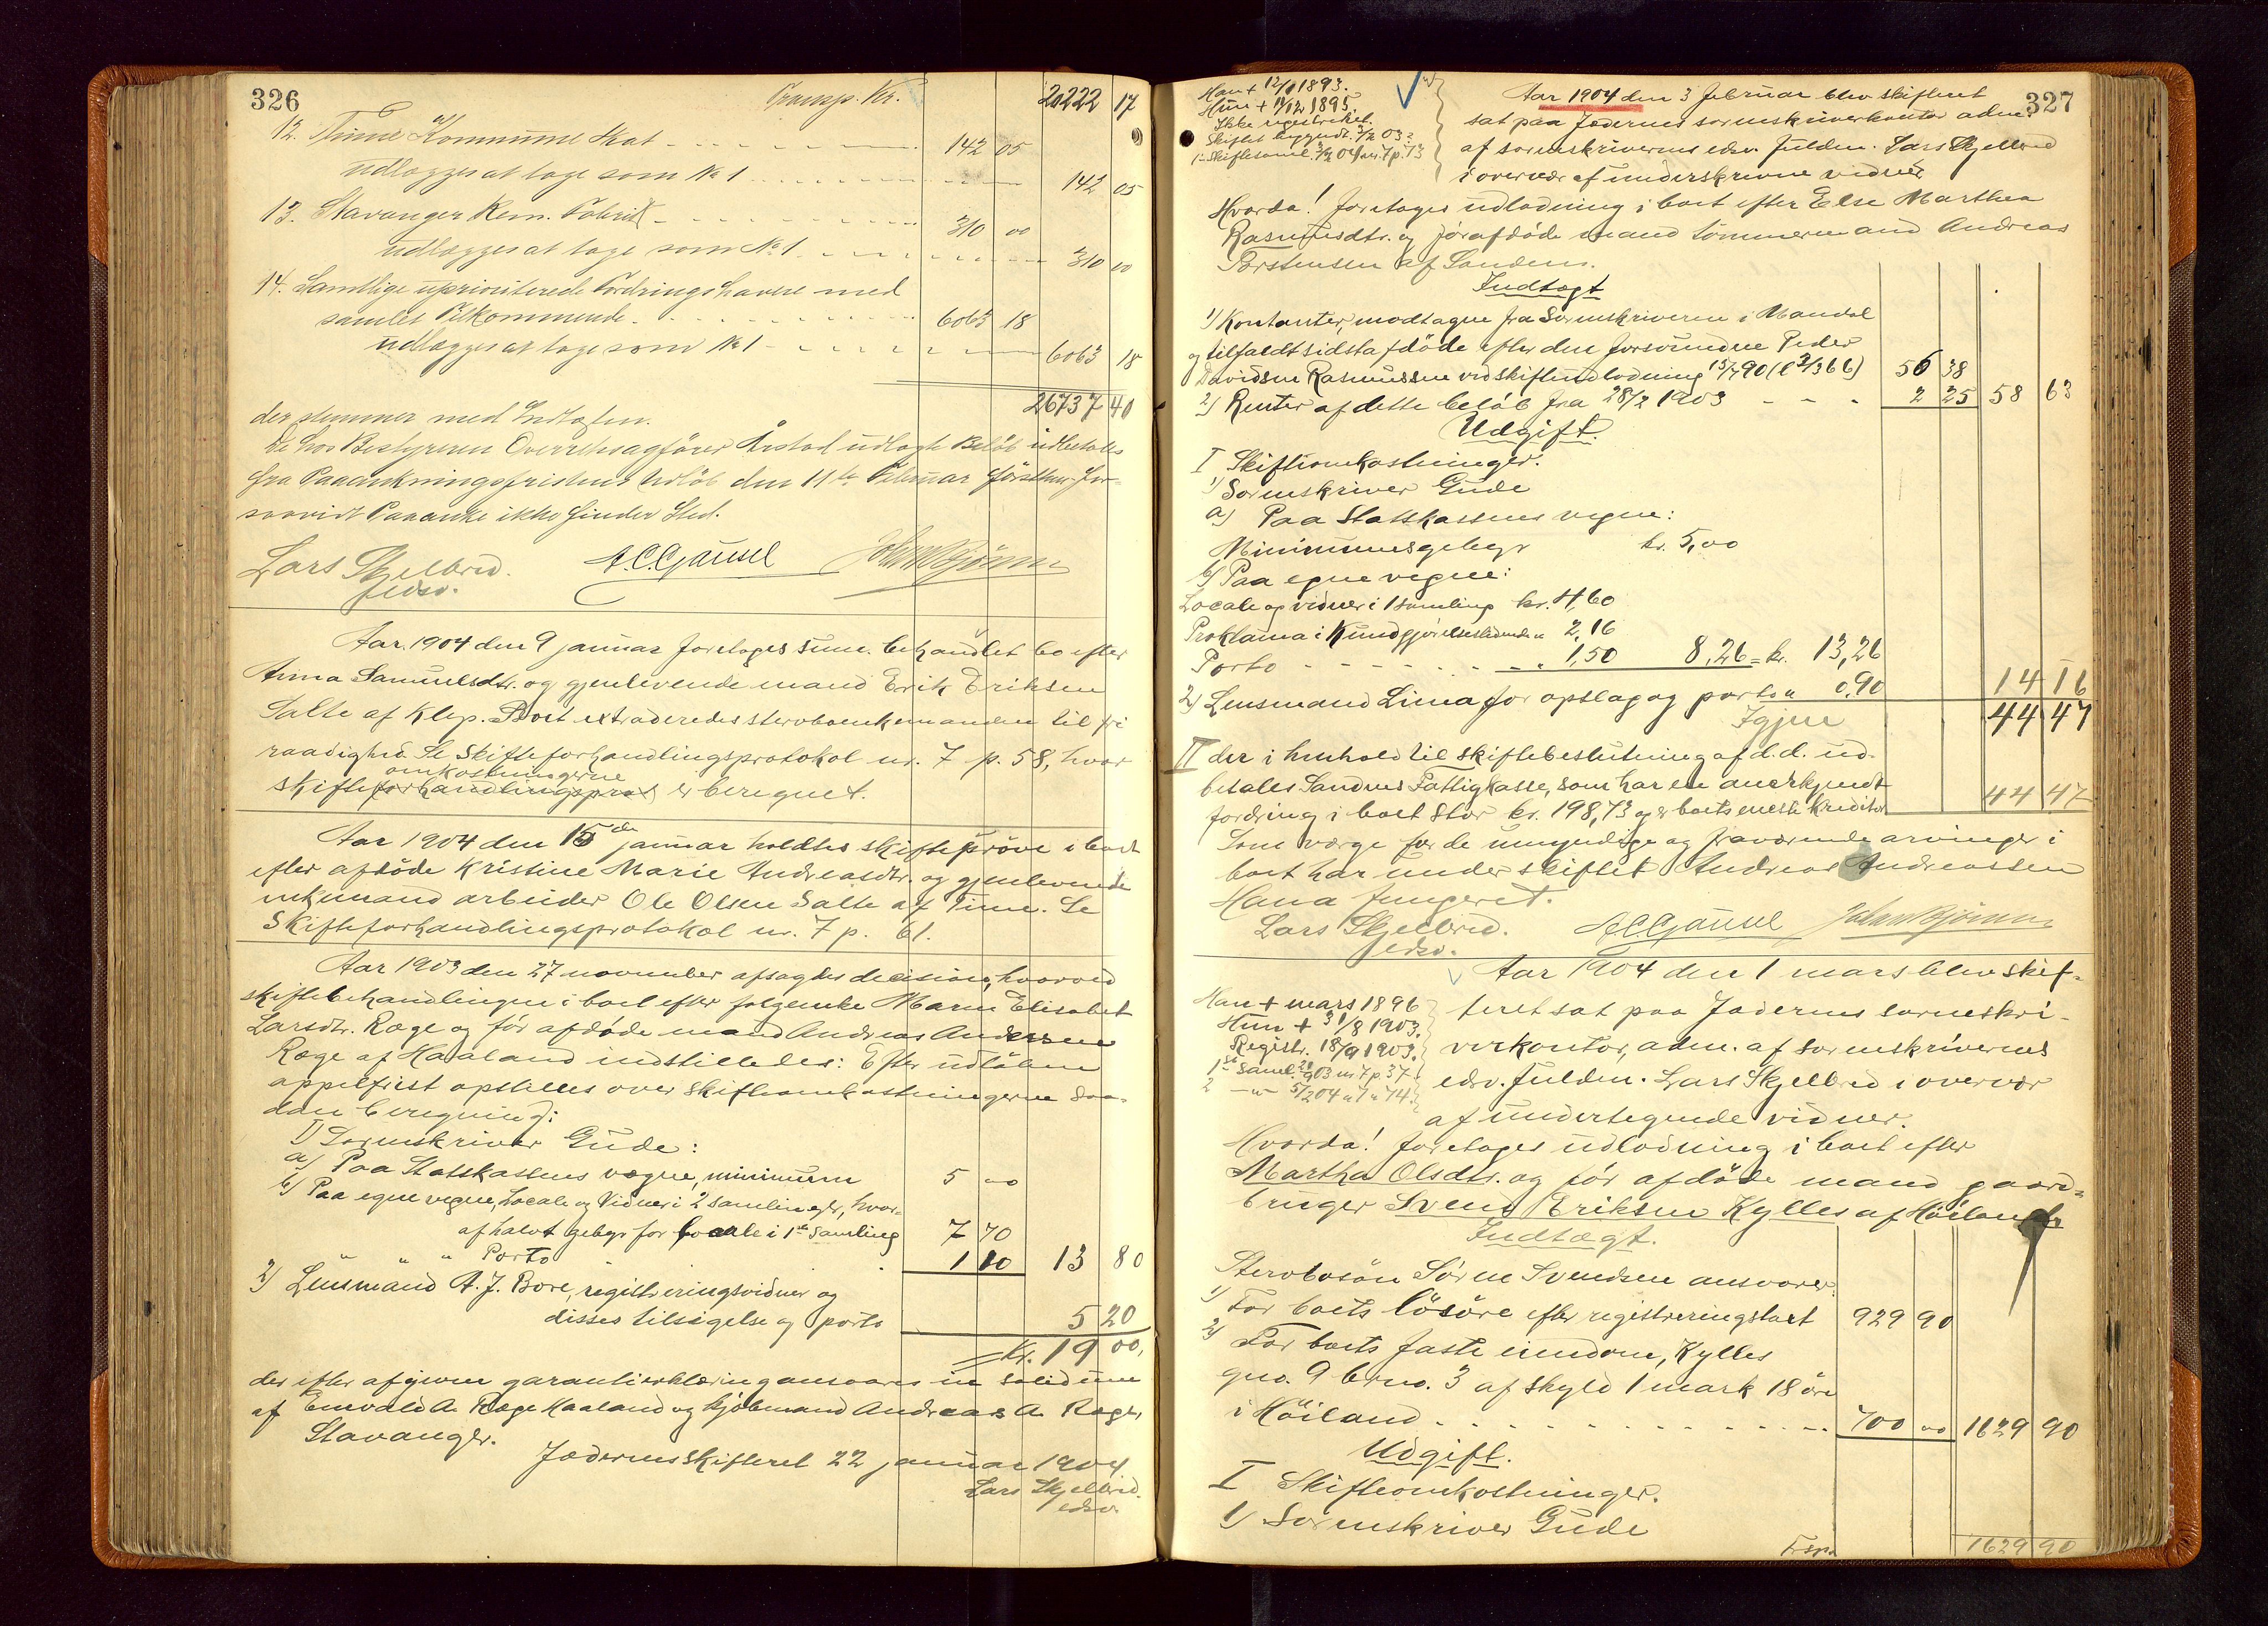 326
Transp. Kr. 20222 17
12. Thime Kommune Skat 142 05
udlægges at tage som № 1 142 05
13. Stavanger Rem. Fabrik 310 00
udlægges at tage som № 1 310 00
14. Samtlige upriviterede Fordringshavere med
samlet Tilkommende 6063 18
udlægges at tage som № 1 6063 18
26737 40
der stemmer med Indtægten.
De hos Bestyreren Overretssagfører Årstad udlagte Beløb udbetales
fra Paaankningsfristens Udløb den 11te Februar førsttk. for-
saavidt Paaanke ikke finder Sted.
Lars Skjelbred. A.C.Gausel
edsv.
Aar 1904 den 9 januar foretoges sum. behandlet bo efter
Anna Samuelsdtr. og gjenlevende mand Erik Eriksen
Salte af Klep. Boet extraderedes stervboenkemanden til fri
raadighed. Se Skifteforhandlingsprotokol nr. 7 p. 58, hvor
omkostningerne
skifteforhandlingsprot er beregnet.
Aar 1904 den 15de januar holdtes skifteprøve i boet
efter afdøde Kristine Marie Andreasdtr. og gjenlevende
enkemand arbeider Ole Olsen Salte af Time. Se
Skifteforhandlingsprotokol nr. 7 p. 61.
Aar 1903 den 27 november afsagdes decision, hvorved
skiftebehandlingen i boet efter følgenke Maren Elisabet
Larsdtr. Ræge og før afdøde mand Andreas Andersen
Ræge af Haaland indstilledes: Efter udløben
appelfrist opstilles over skifteomkostningerne saa-
dan beregning:
1) Sorenskriver Gude:
a) Paa Statskassens vegne, minimum 5 00
b) Paa egne vegne, Locale og Vidner i 2 samlinger, hvor-
af halvt gebyr for locale i 1ste Samling 7 70
" " " Porto 1 10 13 80
2) Lensmand A. J. Bore, registreringsvidner og
disses tilsigelse og porto 5 20
= Kr. 19 00,
der efter afgiven garantierklæring ansvares in solidum
af Enevald A. Ræge Haaland og kjøbmand Andreas A. Ræge,
Stavanger.
Jæderens skifteret 22 januar 1904
Lars Skjelbred.
edsv.
327
Han + 12/1 1893.
Hun + 11/12 1895.
Ikke registreret.
Skiftet begyndt 03.
1. Skiftesaml. 3/2 04 nr. 7 p. 73
Aar 1904 den 3 februar blev skifteret
sat paa Jæderens sorenskriverkontor adm.
af sorenskriverens edsv. fuldm. Lars Skjelbred
i overvær af underskrevne vidner
Hvorda! foretoges udlodning i boet efter Else Marthea
Rasmusdtr. og førafdøde mand tømmermand Andreas
Torstensen af Sandnes.
Indtægt
1) Kontanter, modtagne fra Sorenskriveren i Mandal
og tilfaldt sidstafdøde efter den forsvundne Peder
Davidsen Rasmussen ved skifteudlodning 15/7 90 (l 3/366) 56 38
2) Renter af dette beløb fra 28/2 1903 2 25 58 63
Udgift.
I Skifteomkostninger.
1) Sorenskriver Gude
a) Paa Statskassens vegne:
Minimumsgebyr kr. 5,00
b) Paa egne vegne:
Locale og vidner i 1 samling kr. 4,60
Proklama i Kundgjørelsestidende " 2,16
Porto " 1,50 8,26 = kr. 13,26
2) Lensmand Lima for opslag og porto " 0,90 14 16
Igjen 44 47
II der i henhold til skiftebeslutning af d.d. ud-
betales Sandnes Fattigkasse, som har en anerkjendt
fordring i boet stor kr. 198,73 og er boets eneste kreditor 44 47
Som værge for de umyndige og fraværende arvinger i
boet har under skiftet Andreas Andreassen
Hana fungeret.
Lars Skjelbred. A.C.Gausel
edsv.
Han + mars 1896
Hun + 31/8 1903.
Registr. 18/9 1903.
1ste Saml. 903 nr 7 p. 37
2 — " — 5/2 04 " 7 " 74.
Aar 1904 den 1 mars blev skif-
teret sat paa Jæderens sorenskri-
verkontor, adm. af sorenskriverens
edsv. fuldm. Lars Skjelbred i overvær
af undertegnede vidner.
Hvorda! foretoges udlodning i boet efter
Martha Olsdtr. og før afdøde mand gaard-
bruger Svend Eriksen Kylles af Høiland.
Indtægt.
Stervbosøn Søren Svendsen ansvarer
1) For boets løsøre efter registreringstaxt 929 90
2) For boets faste eiendom, Kylles
gno. 9 bno. 3 af skyld 1 mark 18 øre
i Høiland 700 00 1629 90
Udgift.
I Skifteomkostninger.
1) Sorenskriver Gude
Trsp. 1629 90